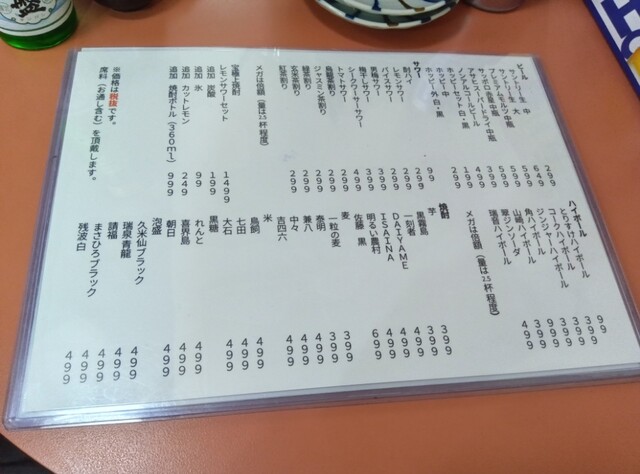 ビール
サントリー生 中 299
サントリー生 大 649
プレミアムモルツ中瓶 599
サッポロ赤星中瓶 599
アサヒスーパードライ中瓶 599
ノンアルコールビール 499
ホッピーセット白・黒 499
ホッピー 中 199
ホッピー 外 白・黒 299
サワー
酎ハイ 99
レモンサワー 299
バイスサワー 399
男梅サワー 399
梅干しサワー 399
シークワーサーサワー 499
トマトサワー 399
烏龍茶割り 299
緑茶割り 299
ジャスミン茶割り 299
玄米茶割り 299
紅茶割り 299
メガは倍額(量は2.5杯程度)
宝極上焼酎
レモンサワーセット 1499
追加 炭酸 199
追加 氷 99
追加 カットレモン 249
追加 焼酎ボトル(360ml) 999
※価格は税抜です。
席料(お通し含む)を頂戴します。
ハイボール
とりすけハイボール 99
コークハイボール 399
ジンジャーハイボール 399
角ハイボール 399
山崎ハイボール 999
翠ジンソーダ 399
ハイボール 499
メガは倍額(量は2.5杯程度)
焼酎
芋
黒霧島 399
一刻者 399
DAIYAME 499
ISAINA 499
明るい農村 499
佐藤 黒 699
麦
一粒の麦 399
泰明 399
兼八 499
中々 499
吉四六 499
米
鳥飼 499
七田 499
大石 499
黒糖
れんと 499
喜界島 499
朝日 499
泡盛
久米仙ブラック 499
瑞泉青龍 499
請福 499
まさひろブラック 499
残波 白 499